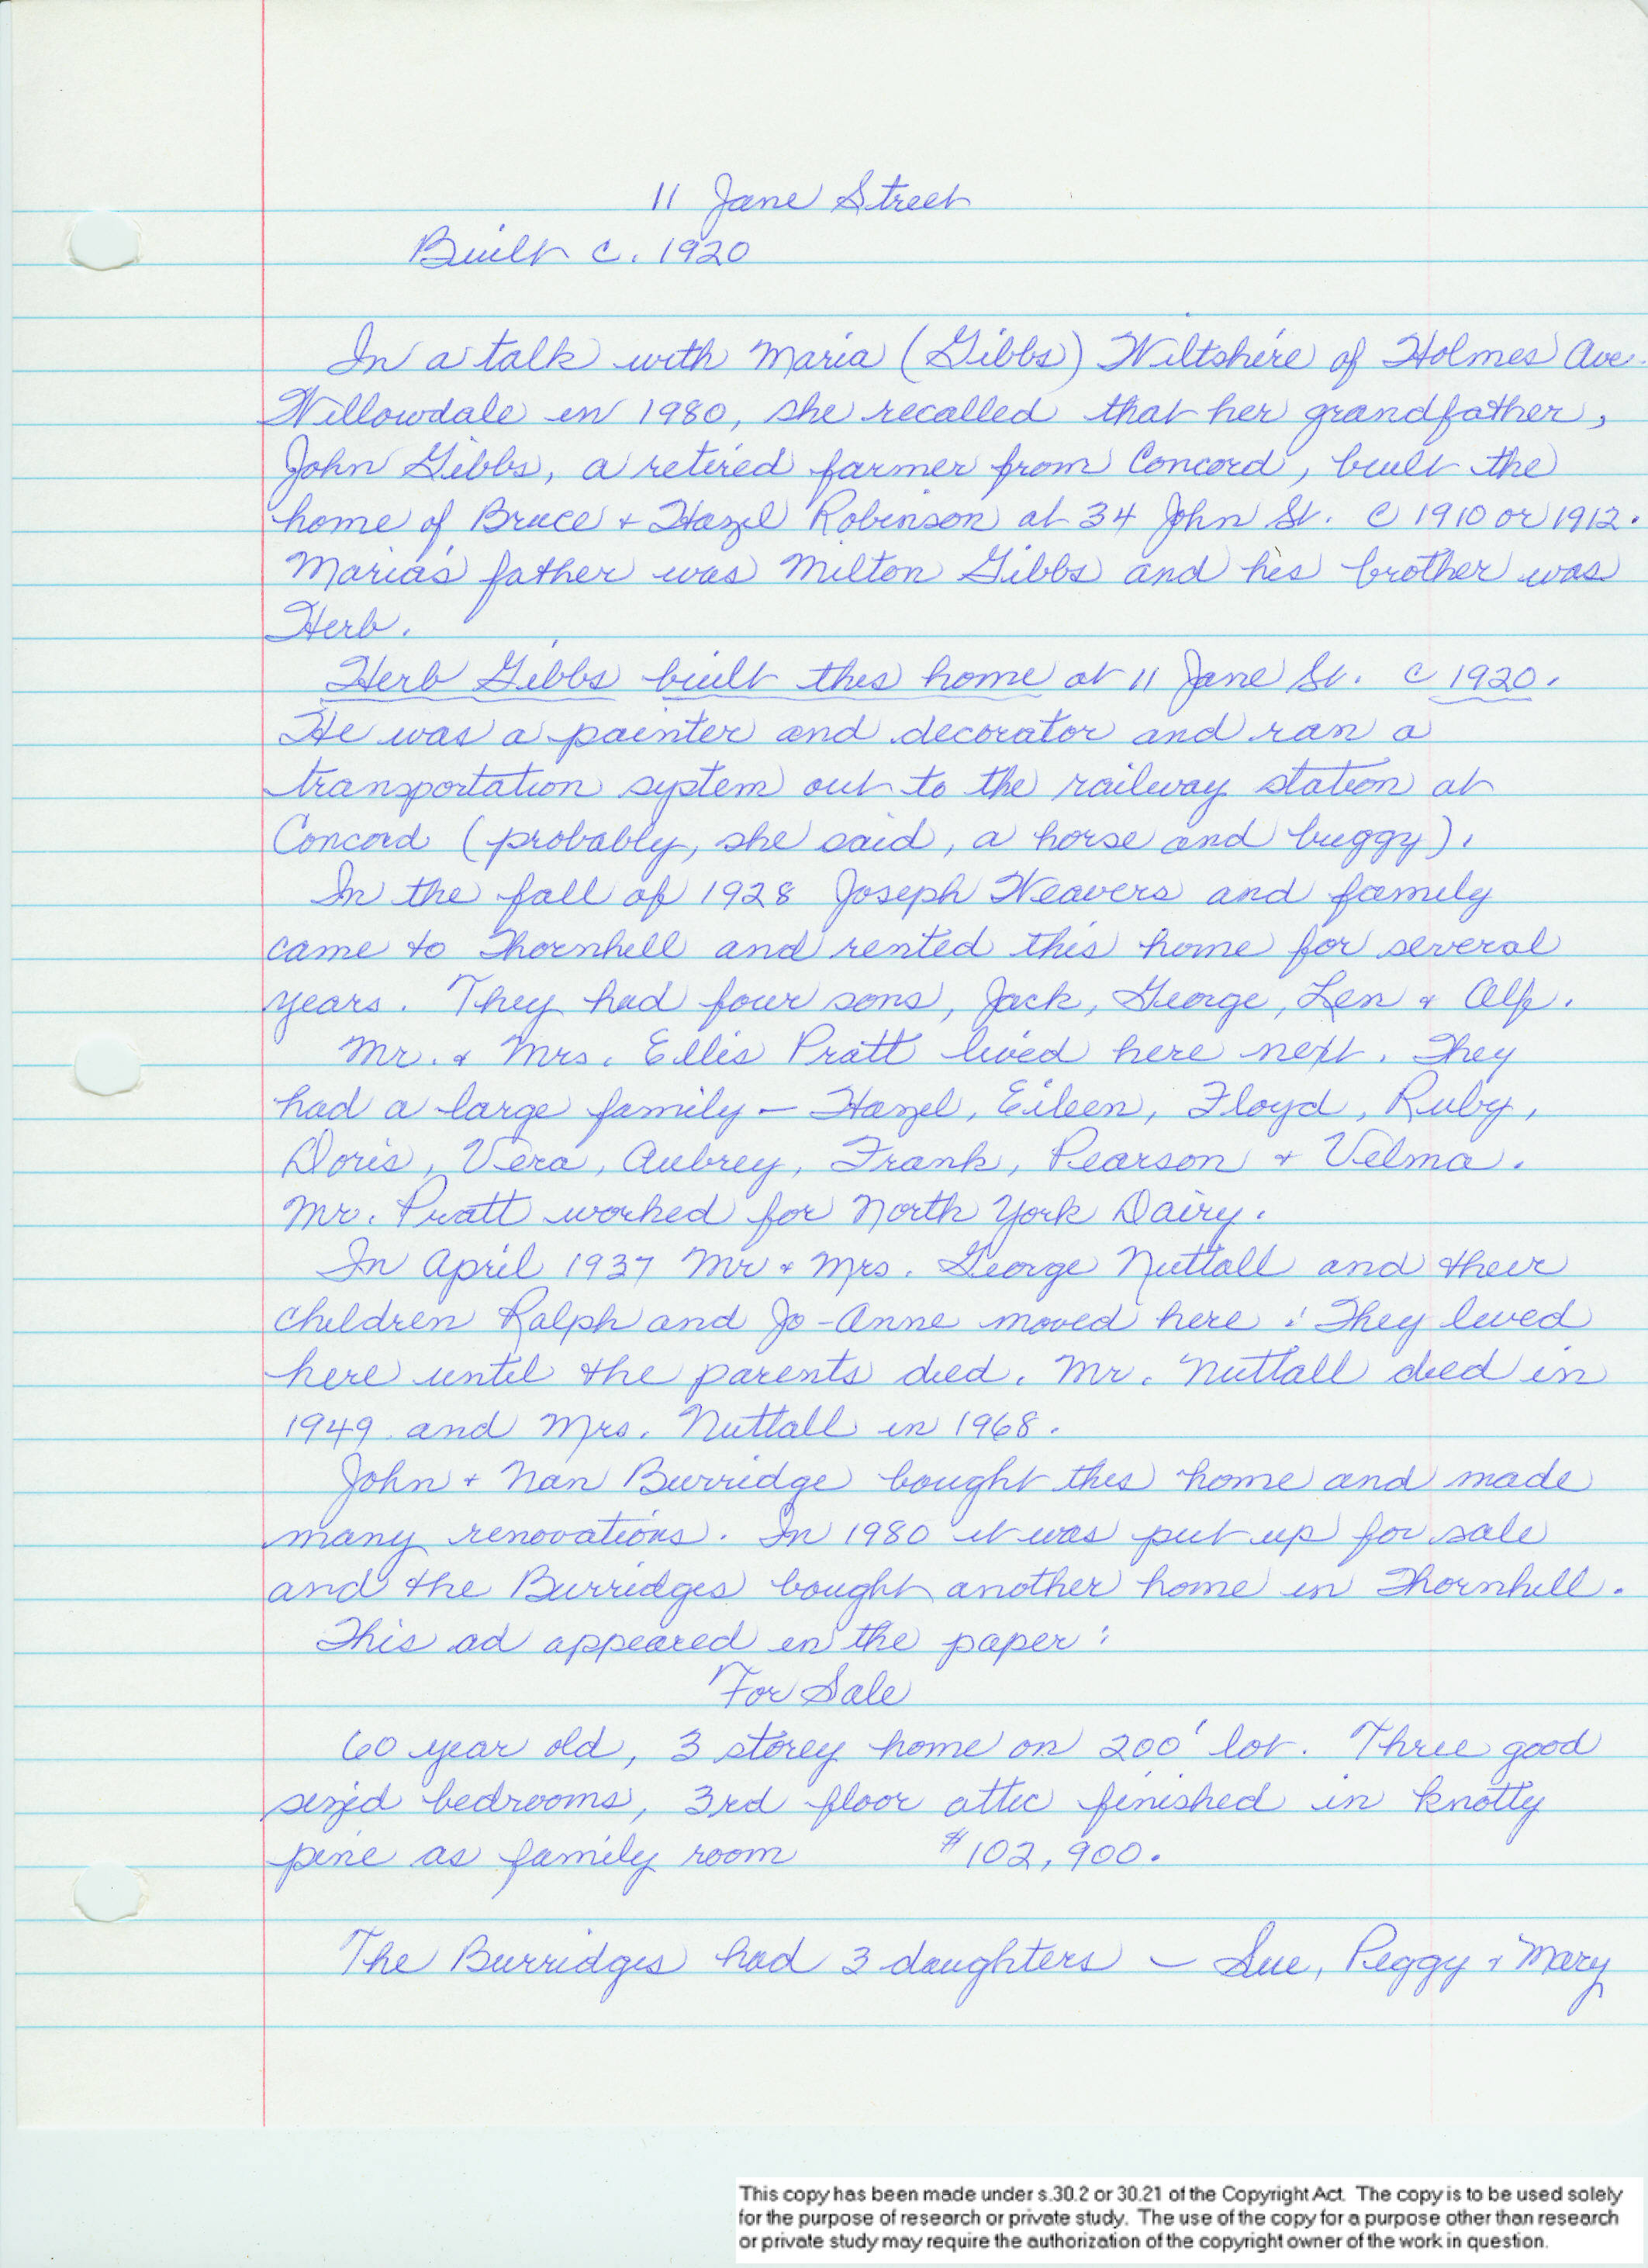 11 Jane Street
Built c. 1920
In a talk with Maria (Gibbs) Wiltshire of Holmes Ave.
Willowdale in 1980, she recalled that her grandfather,
John Gibbs, a retired farmer from Concord, built the
home of Bruce + Hazel Robinson at 34 John St. c 1910 or 1912.
Maria's father was Milton Gibbs and his brother was
Herb.
Herb Gibbs built this home at 11 Jane St. c 1920.
He was a painter and decorator and ran a
transportation system out to the railway station at
Concord (probably, she said, a horse and buggy).
In the fall of 1928 Joseph Weavers and family
came to Thornhill and rented this home for several
years. They had four sons, Jack, George, Len + Alf.
Mr. + Mrs. Ellis Pratt lived here next. They
had a large family - Hazel, Eileen, Floyd, Ruby,
Doris, Vera, Aubrey, Frank, Pearson + Velma.
Mr. Pratt worked for North York Dairy.
In April 1937 Mr + Mrs. George Nuttall and their
children Ralph and Jo-Anne moved here. They lived
here until the parents died. Mr. Nuttall died in
1949 and Mrs. Nuttall in 1968.
John + Nan Burridge bought this home and made
many renovations. In 1980 it was put up for sale
and the Burridges bought another home in Thornhill.
This ad appeared in the paper:
For Sale
60 year old, 3 storey home on 200' lot. Three good
sized bedrooms, 3rd floor attic finished in knotty
pine as family room $102,900.
The Burridges had 3 daughters - Sue, Peggy + Mary
This copy has been made under s.30.2 or 30.21 of the Copyright Act. The copy is to be used solely
for the purpose of research or private study. The use of the copy for a purpose other than research
or private study may require the authorization of the copyright owner of the work in question.